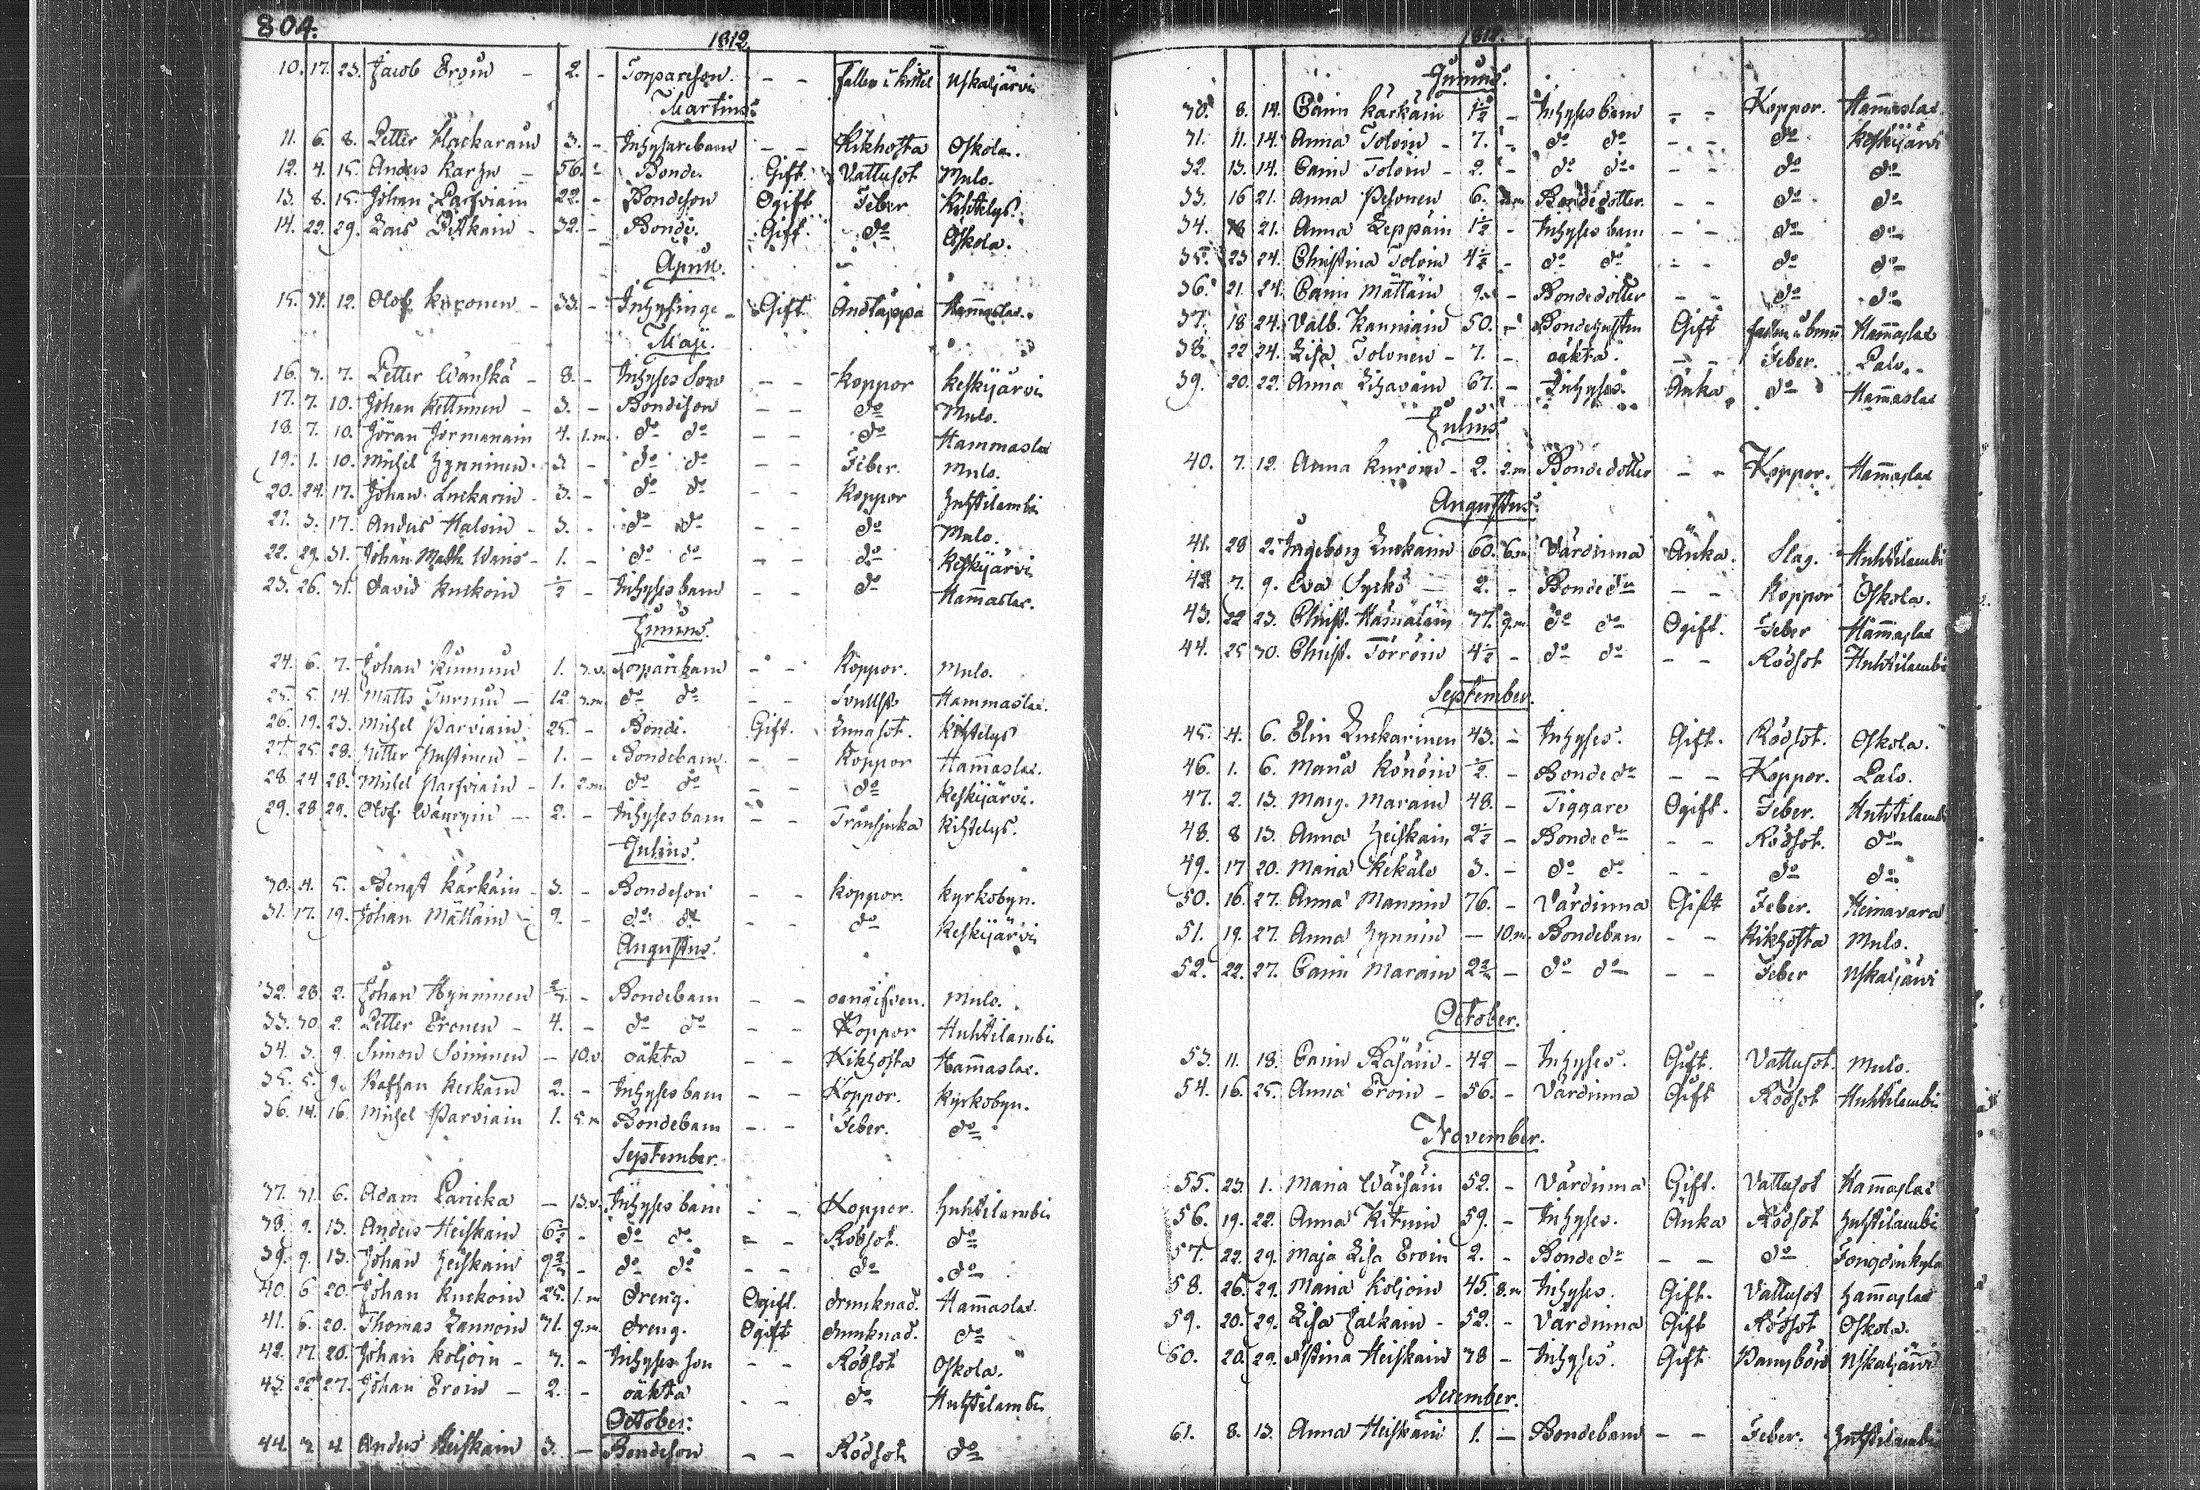 804.
1812
10. 17. 23. Jacob Ervin - 2. - Torpareson. - - Fallen i kittel Uskaljärvi
Martius.
11. 6. 8. Petter 3. - Inhysesbarn - - Kikhosta Oskola.
12. 4. 15. Anders Karhu - 56. - Bonde. Gift. Vattusot Mulo.
13. 8. 15. Johan Parfviain 22. - Bondeson Ogift Feber Kihtelys.
14. 22. 29. Lars Pitkäin - 32. - Bonde. Gift. do Oskola.
April.
15. 31. 12. Olof Koronen - 33. - Inhysinge - Gift Andtäppa Hammaslax.
Maji.
16. 3. 7. Petter Wänskä - 8. - Inhyses son - - Koppor Keskijärvi
17. 7. 10. Johan Kettunen - 3. - Bondeson - - do Mulo.
18. 7. 10. Jöran Jormanain 4. 1.m. do do - - do Hammaslax
19. 1. 10. Michel Hynninen. 3. - do do - - Feber. Mulo.
20. 24. 17. Johan Luckarin - 3. - do do - - Koppor Huhtilambi
21. 3. 17. Anders Haloin - 3. - do do - - do Mulo.
22. 29. 31. Johan Math. Wäns - 1. - do do - - do Keskijärvi
23. 26. 31. David Kuckoin ½ - Inhyses barn - - do Hammaslax.
Junius.
24. 6. 7. Johan 1. 3.v. Torparebarn - - Koppor. Mulo.
25. 5. 14. Matts Turunin - 12. 3.m. do do - - Hammaslax.
26. 19. 23. Michel Parviain 25. - Bonde. Gift. Lungsot. Kihtelys
27. 25. 28. Petter Hustinen - 1. - Bondebarn. - - Koppor Hammaslax.
28 24 28. Michel Parfviain - 1. 2.m. do do - - do Keskijärvi.
29. 28 29. Olof - 2. - Inhysesbarn - - Trånsjuka Kihtelys.
Julius.
30. 4. 5. Bengt Kärkäin - 3. - Bondeson - - Koppor. Kyrkobyn.
31. 17. 19. Johan Mättäin - 9. - do do - - do Keskijärvi
Augustus.
32. 28. 2. Johan Hynninen - Bondebarn - - oangifven. Mulo.
33. 30. 2. Petter Eronen - 4. - do do - - Koppor Huhtilambi
34. 3. 9. Simon Soininen - 10.v. oäkta - - Kikhosta Hammaslax.
35. 5. 9. Staffan 2. - Inhyses barn - - Koppor. Kyrkobyn.
36. 14. 16. Michel Parviain 1. 5.m Bondebarn - - Feber. do
September.
37. 31. 6. Adam - 13.v. Inhyses barn - - Koppor. Huhtilambi
38. 9. 13. Anders Heiskain 6½ - do do - - Rödsot. do
39. 9. 13. Johan Heiskain - do do - - do do
40. 6 20. Johan Kuckoin 25. 1.m Dreng. Ogift. Drunknad. Hammaslax.
41. 6. 20. Thomas Lannoin 31. 9.m. Dreng. Ogift Drunknad. do
42. 17. 20. Johan Koljoin - 3. - Inhyses son - - Rödsot Oskola.
43. 22 27. Johan Eroin - 2. - oäkta - - do Huhtilambi
October:
44. 2. 4. Anders Heiskain 3. - Bondeson - - Rödsot do
1812.
Junius.
30. 8. 14. Carin Kärkäin 1½ - Inhyses barn - - Koppor. Hammaslax.
31. 11. 14. Anna Toloin - 7. - do do - - do Keskijärvi
32. 13. 14. Carin Toloin - 2. - do do - - do do
33. 16 21. Anna Pesonen 6. Bondedotter. - - do do
34. 18 21. Anna Leppäin 1½ - Inhyses barn - - do do
35. 23 24. Christina Toloin 4½ - do do - - do do
36. 21. 24. Carin Mättäin 9. - Bondedotter - - do do
37. 18 24. Valb. Kanniain 50. - Bondehustru Gift Fallen i brunn Hammaslax
38. 22 24. Lisa Tolonen - 7. - oäkta. - - Feber. Palo.
39. 20. 22. Anna 67. - Inhyses. Änka do Hammaslax
Julius
40. 7. 12. Anna Kuroin - 2. 2.m Bondedotter - - Koppor. Hammaslax
Augustus.
41. 28 2. Ingeborg Luckain 60. 6.m Värdinna Änka. Slag. Huhtilambi
42 7. 9. Eva Syrko - 2. - Bonde dr - - Koppor Oskola.
43. 22 23. Christ. Hämäläin 77. 9.m do do Ogift. Feber Hammaslax
44. 25 30. Christ. Törröin 4½ - do do - - Rödsot Huhtilambi
September.
45. 4. 6. Elin Luckarinen 43. - Inhyses. Gift. Rödsot. Oskola.
46. 1. 6. Maria Könöin ½. - Bonde dr - - Koppor. Palo.
47. 2. 13. Marg. Marain 48. - Tiggare Ogift. Feber. Huhtilambi
48. 8 13. Anna Heiskain 2½ - Bonde dr - - Rödsot. do
49. 17 20. Maria Kekäle 3. - do do - - do do
50. 16. 27. Anna Mannin 76. - Värdinna Gift Feber. Heinavara
51. 19. 27. Anna Hynnin - 10.m. Bondebarn - - Kikhosta Mulo.
52. 22. 27. Carin Marain - do do - - Feber Uskaljärvi
October.
53. 11. 18. Carin Räsäin - 42 - Inhyses. Gift. Vattusot. Mulo.
54. 16. 25. Anna Eroin - 56. - Värdinna Gift Rödsot Huhtilambi
November.
55. 23. 1. Maria Wäisäin 52. - Värdinna Gift. Vattusot Hammaslax
56. 19. 22. Anna Kitunin 59. - Inhyses. Änka Rödsot Huhtilambi
57. 22. 29. Maja Lisa Eroin 2. - Bonde dr - - do
58. 26. 29. Maria Koljoin 45. 8.m Inhyses. Gift. Vattusot Hammaslax
59. 20. 29. Lisa Jalkain - 52. - Värdinna Gift Rödsot Oskola.
60. 20. 29. Stina Heiskain 38 - Inhyses. Gift Barnsbörd Uskaljärvi
December.
61. 8. 13. Anna Heiskain 1. - Bondebarn - - Feber. Huhtilambi